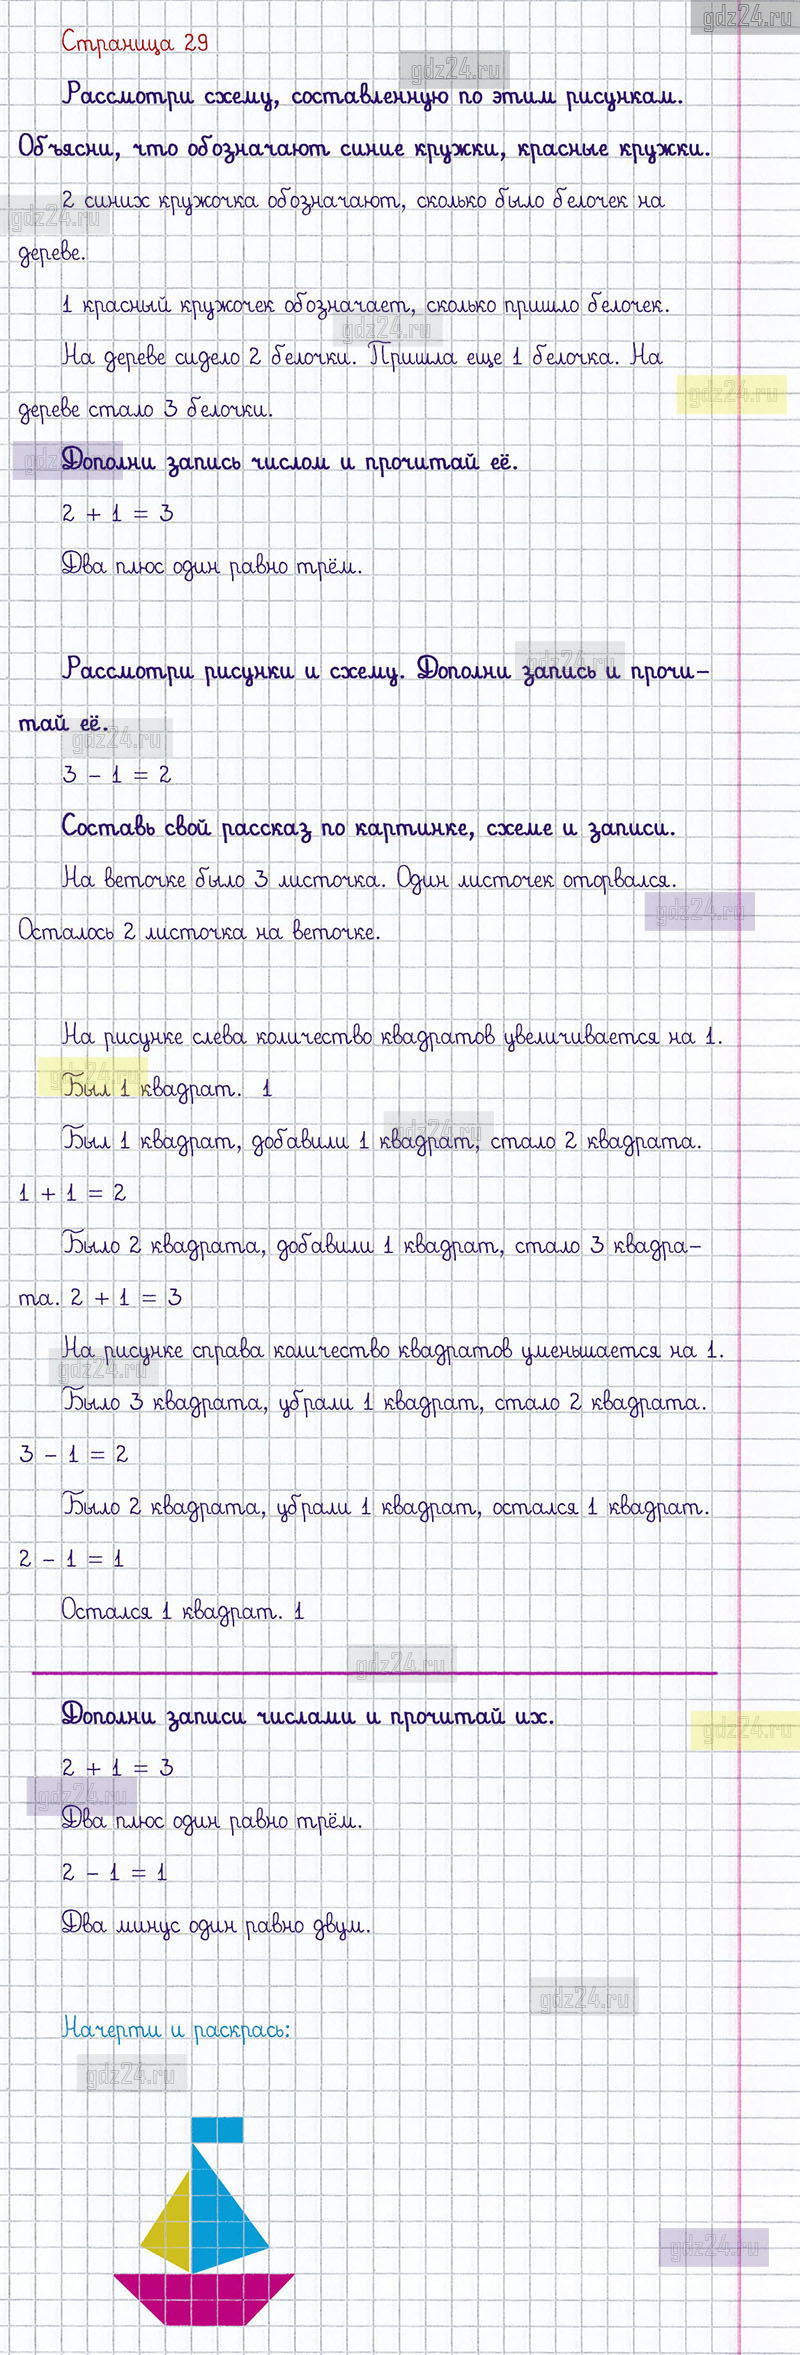 gdz24.ru
Страница 29
gdz24.ru
Рассмотри схему, составленную по этим рисункам.
Объясни, что обозначают синие кружки, красные кружки.
2 синих кружочка обозначают, сколько было белочек на
gdz24.ru
дереве.
1 красный кружочек обозначает, сколько пришло белочек.
gdz24.ru
На дереве сидело 2 белочки. Пришла еще 1 белочка. На
gdz24.ru
дереве стало 3 белочки.
gdz24.ru
Дополни запись числом и прочитай её.
2 + 1 = 3
Два плюс один равно трём.
gdz24.ru
Рассмотри рисунки и схему. Дополни запись и прочи-
тай её.
gdz24.ru
3 - 1 = 2
Составь свой рассказ по картинке, схеме и записи.
На веточке было 3 листочка. Один листочек оторвался.
gdz24.ru
Осталось 2 листочка на веточке.
На рисунке слева количество квадратов увеличивается на 1.
gdz24.ru
Был 1 квадрат. 1
gdz24.ru
Был 1 квадрат, добавили 1 квадрат, стало 2 квадрата.
1 + 1 = 2
Было 2 квадрата, добавили 1 квадрат, стало 3 квадра-
та. 2 + 1 = 3
На рисунке справа количество квадратов уменьшается на 1.
gdz24.ru
Было 3 квадрата, убрали 1 квадрат, стало 2 квадрата.
3 - 1 = 2
Было 2 квадрата, убрали 1 квадрат, остался 1 квадрат.
2 - 1 = 1
Остался 1 квадрат. 1
gdz24.ru
Дополни записи числами и прочитай их.
gdz24.ru
2 + 1 = 3
gdz24.ru
Два плюс один равно трём.
2 - 1 = 1
Два минус один равно двум.
gdz24.ru
Начерти и раскрась:
gdz24.ru
gdz24.ru